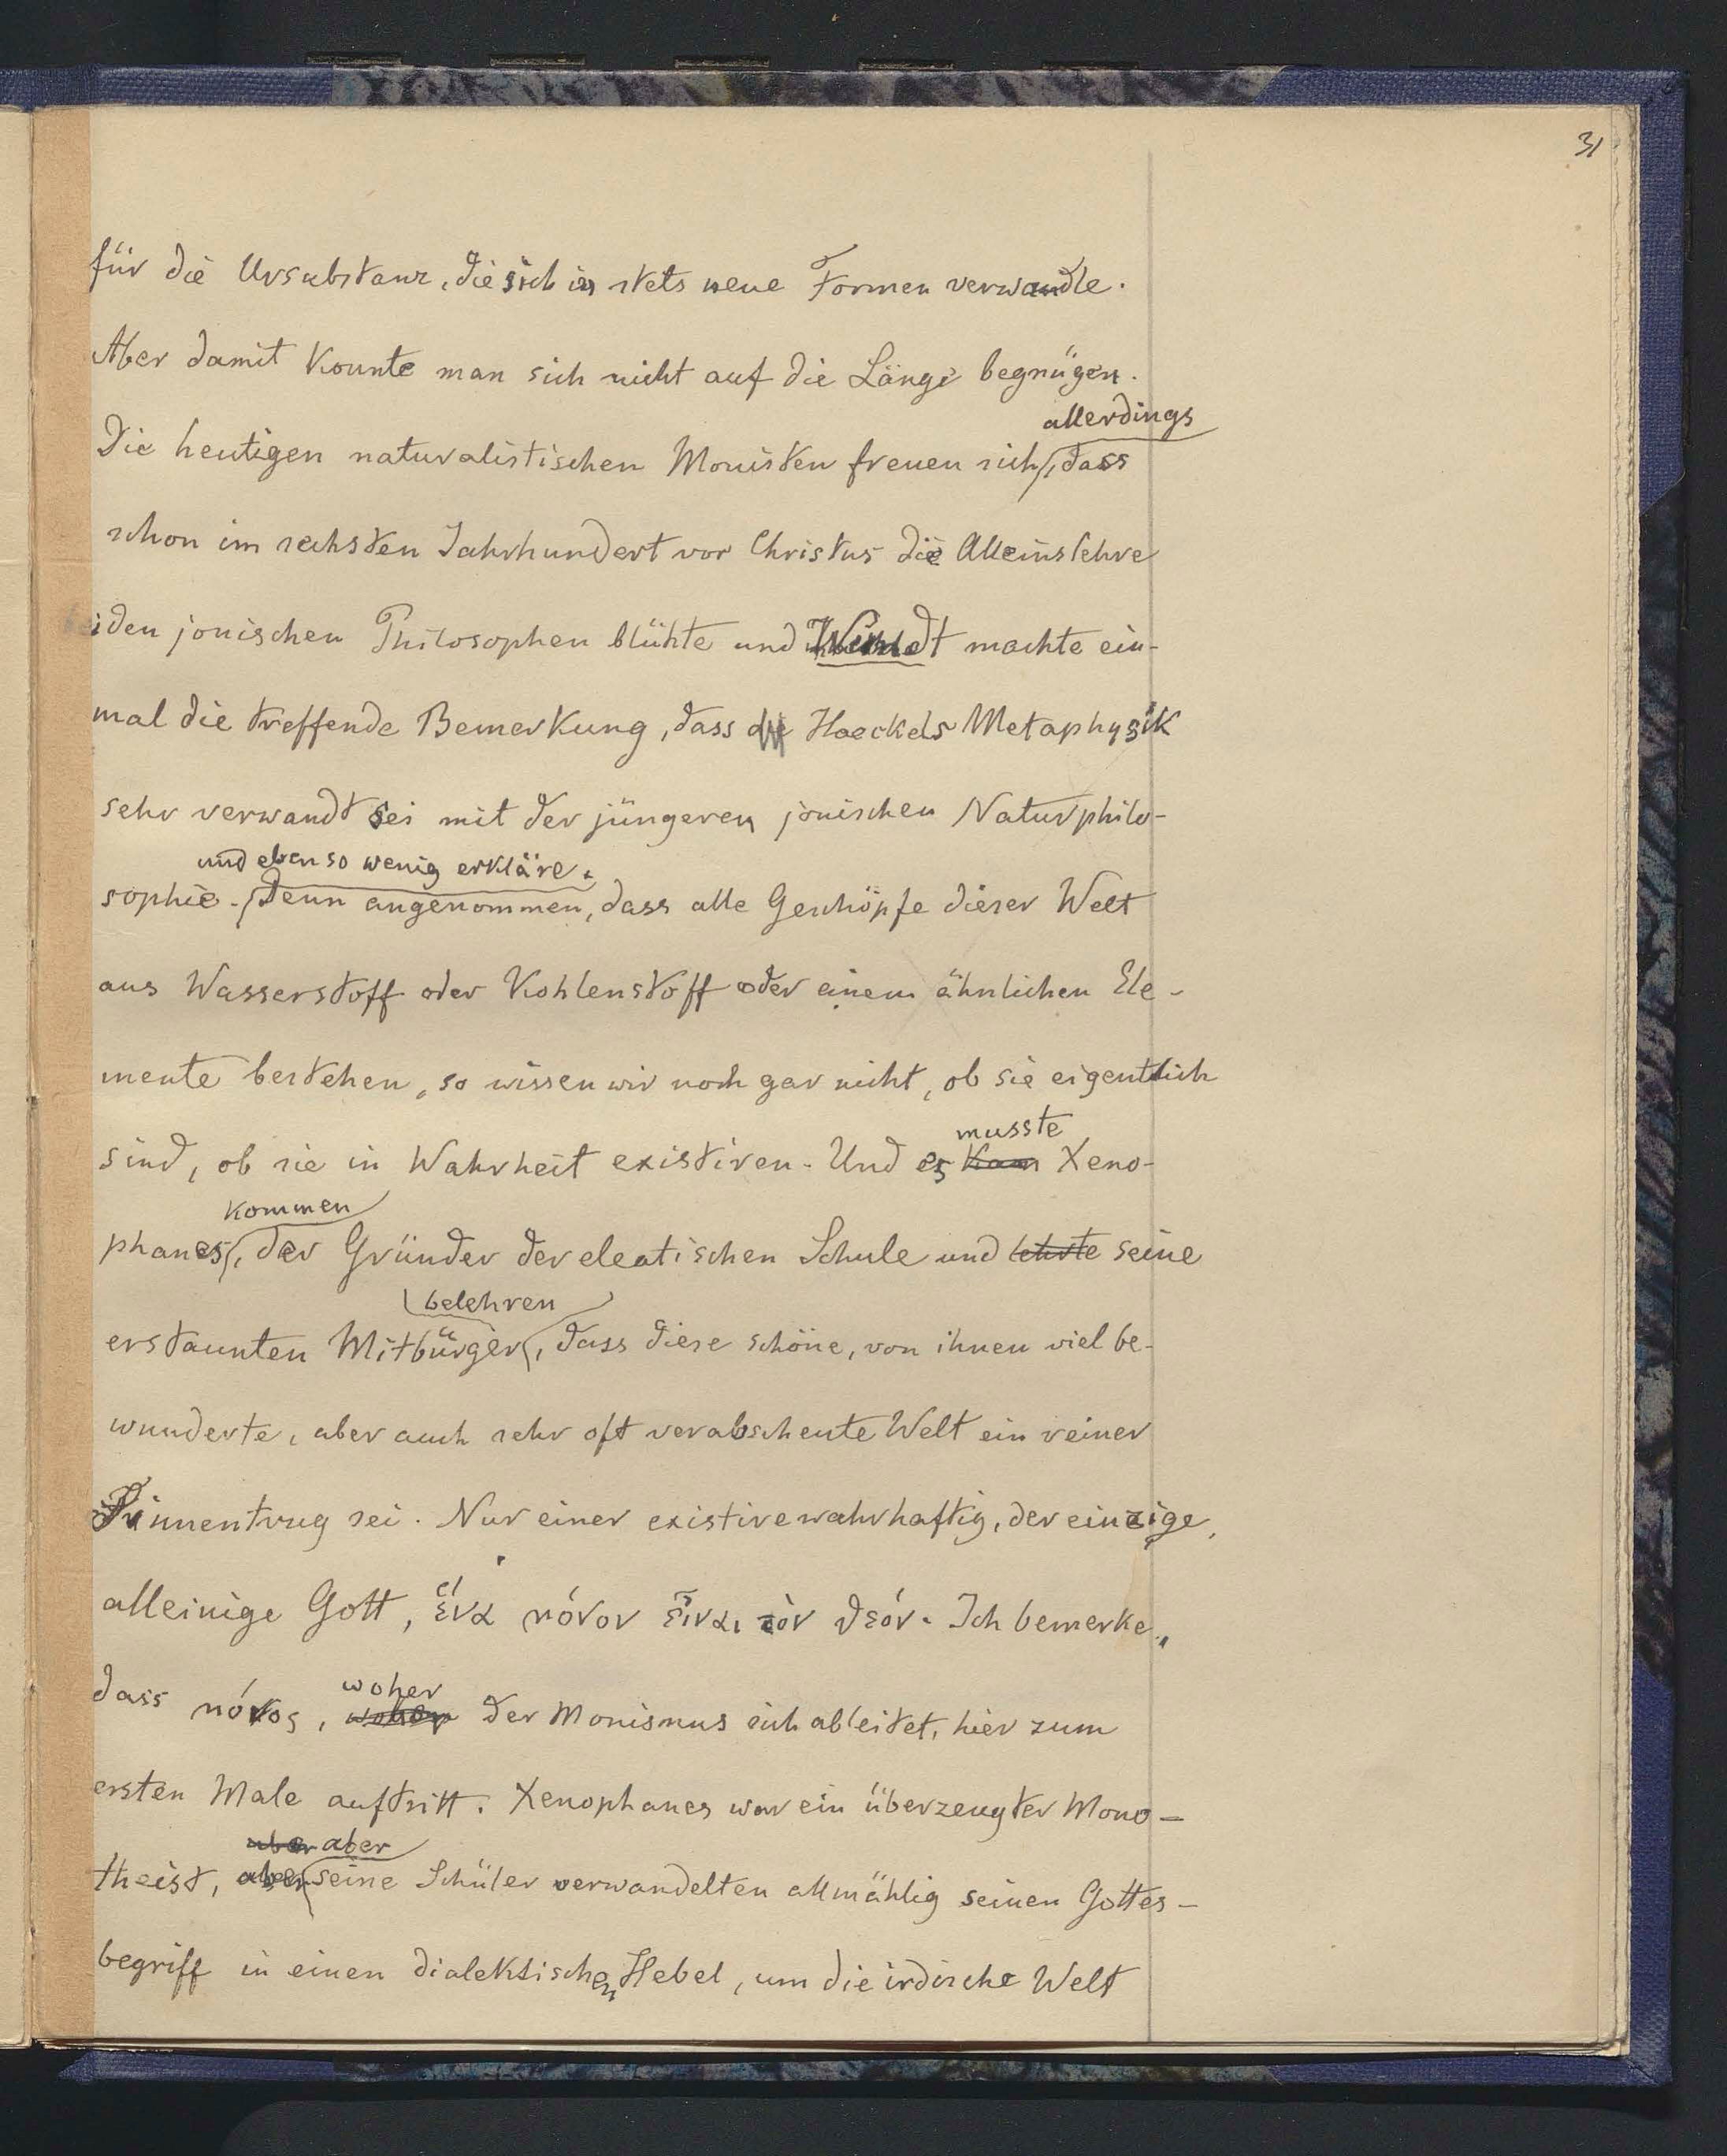 31
für die Ursubstanz, die sich in stets neue Formen verwandle.
Aber damit konnte man sich nicht auf die Länge begnügen.
allerdings
Die heutigen naturalistischen Monisten freuen sich, dass
schon im sechsten Jahrhundert vor Christus die Alleinslehre
den jonischen Philosophen blühte und Wundt machte ein-
mal die treffende Bemerkung, dass die Haeckels Metaphysik
sehr verwandt sei mit der jüngeren jonischen Naturphilo-
und ebenso wenig erkläre.
sophie. Denn angenommen, dass alle Geschöpfe dieser Welt
aus Wasserstoff oder Kohlenstoff oder einem ähnlichen Ele-
mente bestehen, so wissen wir noch gar nicht, ob sie eigentlich
musste
sind, ob sie in Wahrheit existiren. Und es kam Xeno-
kommen
phanes, der Gründer der eleatischen Schule und lehrte seine
belehren
erstaunten Mitbürger, dass diese schöne, von ihnen viel be-
wunderte, aber auch sehr oft verabscheute Welt ein reiner
Sinnentrug sei. Nur einer existire wahrhaftig, der einzige,
alleinige Gott, ἕνα μόνον εἶναι τὸν θεόν. Ich bemerke,
woher
dass μόνος, woher der Monismus sich ableitet, hier zum
ersten Male auftritt. Xenophanes war ein überzeugter Mono-
aber aber
theist, aber seine Schüler verwandelten allmählig seinen Gottes-
begriff in einen dialektischen Hebel, um die irdische Welt